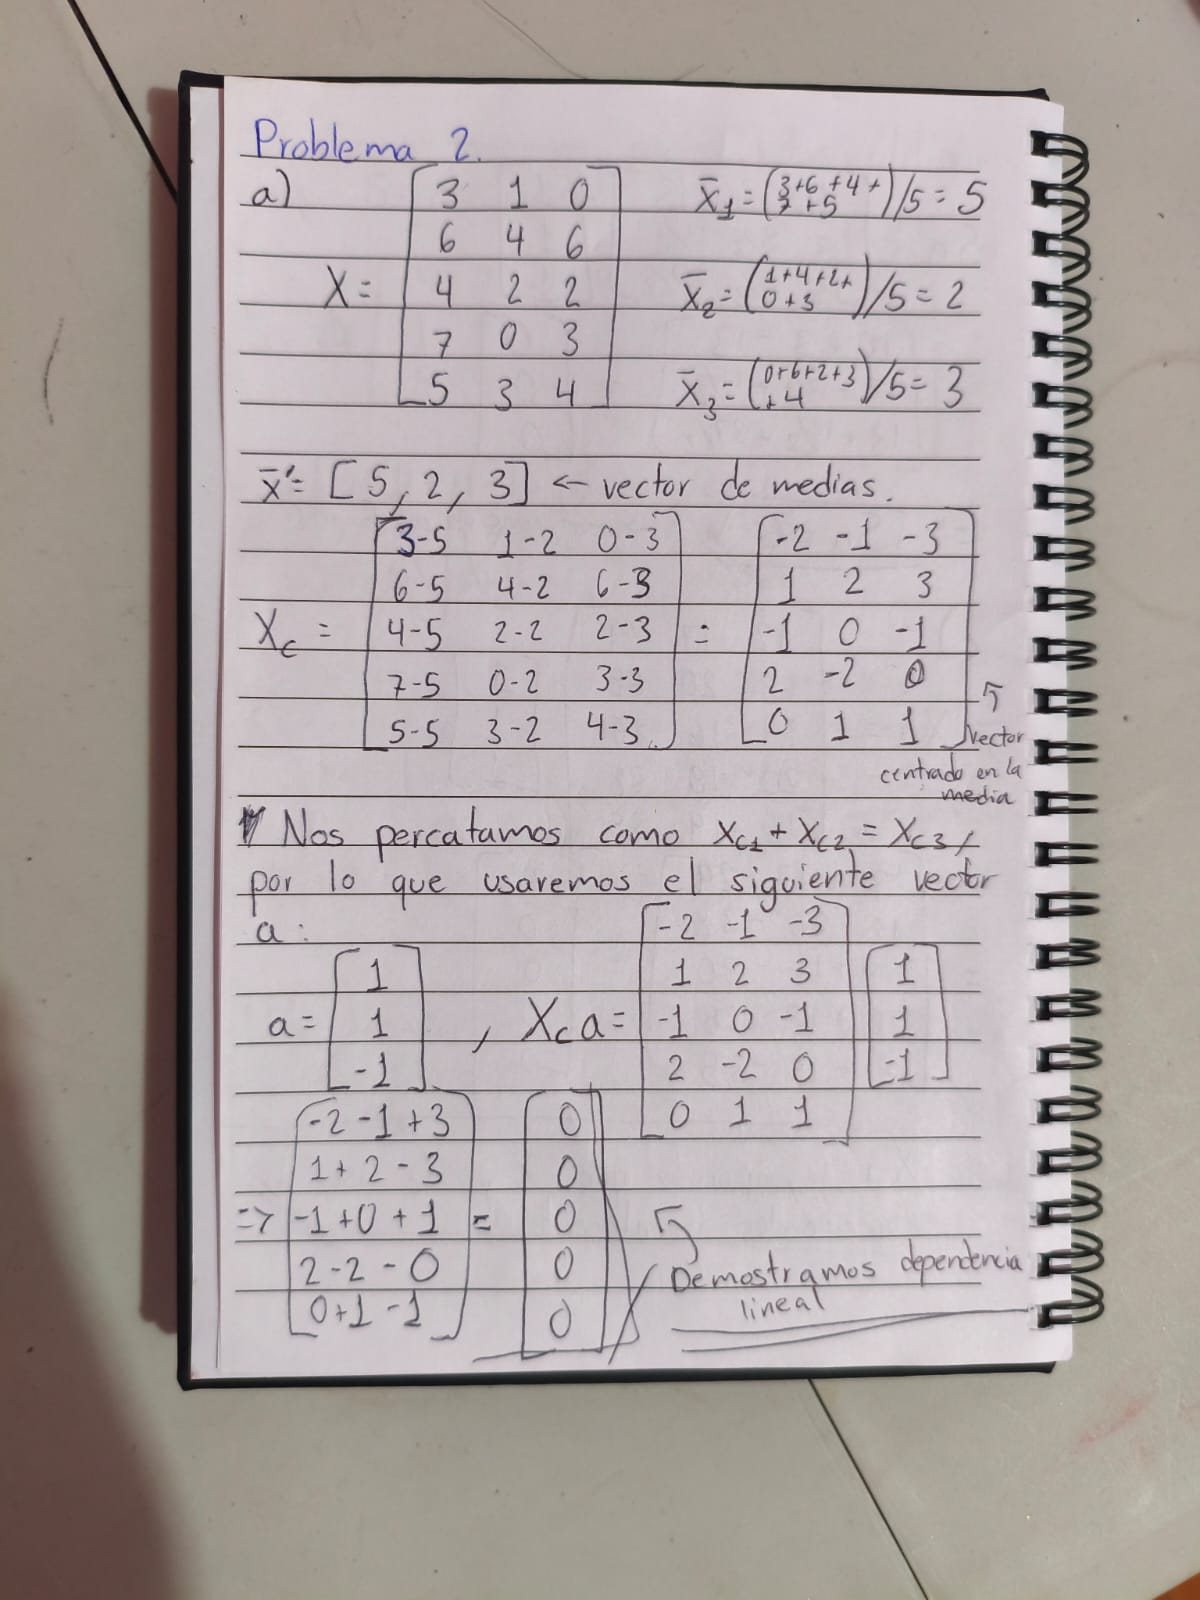 Problema 2.
a)
X = [3 1 0
6 4 6
4 2 2
7 0 3
5 3 4]
x̄1 = (3+6+4+
7+5)/5 = 5
x̄2 = (1+4+2+
0+3)/5 = 2
x̄3 = (0+6+2+3
+4)/5 = 3
x̄' = [5, 2, 3] ← vector de medias.
Xc = [3-5 1-2 0-3
6-5 4-2 6-3
4-5 2-2 2-3
7-5 0-2 3-3
5-5 3-2 4-3]
= [-2 -1 -3
1 2 3
-1 0 -1
2 -2 0
0 1 1]
↖ vector
centrado en la
media
Nos percatamos como Xc1 + Xc2 = Xc3,
por lo que usaremos el siguiente vector
a:
a = [1
1
-1]
, Xc a = [-2 -1 -3
1 2 3
-1 0 -1
2 -2 0
0 1 1]
[1
1
-1]
=> [-2-1+3
1+2-3
-1+0+1
2-2-0
0+1-1]
= [0
0
0
0
0]
↖ Demostramos dependencia
lineal